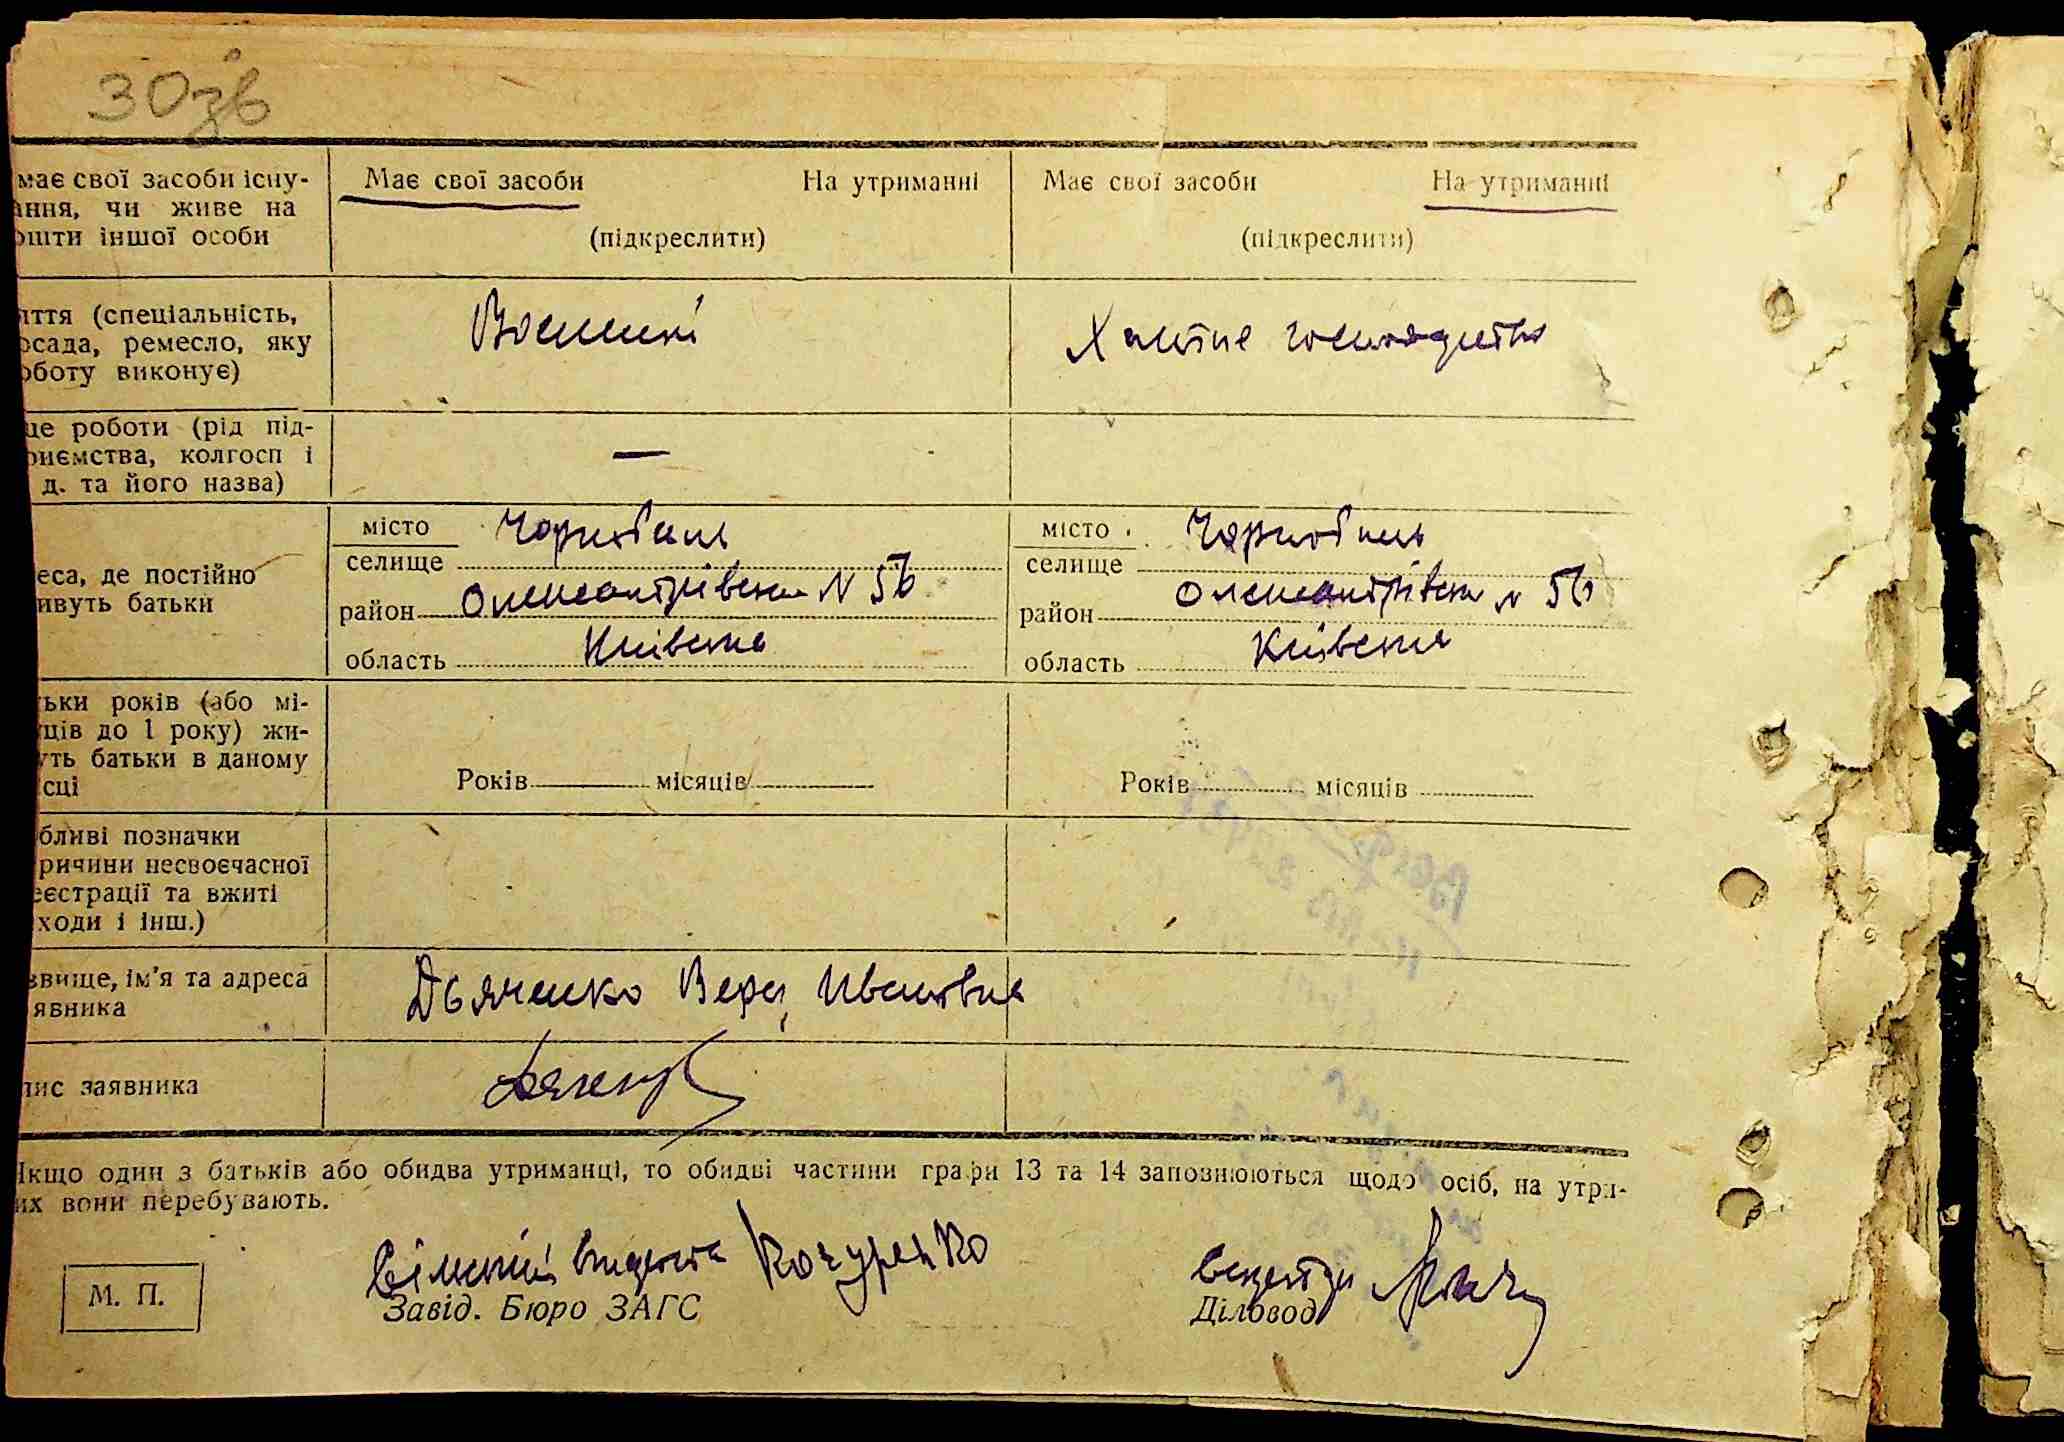 30зв
має свої засоби існу-
ання, чи живе на
ошти іншої особи
Має свої засоби На утриманні
(підкреслити)
Має свої засоби На утриманні
(підкреслити)
яття (спеціальність,
осада, ремесло, яку
оботу виконує)
Хатнє господарство
це роботи (рід під-
риємства, колгосп і
д. та його назва)
—
еса, де постійно
ивуть батьки
місто Чорнобиль
селище
район Олександрівська N 56
область Київська
місто Чорнобиль
селище
район Олександрівська N 56
область Київська
ьки років (або мі-
ців до 1 року) жи-
уть батьки в даному
сці
Років місяців
Років місяців
бливі позначки
ричини несвоєчасної
еєстрації та вжиті
ходи і інш.)
звище, ім'я та адреса
явника
Дьяченко Вера Ивановна
пис заявника
Якщо один з батьків або обидва утриманці, то обидві частини графи 13 та 14 заповнюються щодо осіб, на утри-
их вони перебувають.
М. П.
Кочуренко
Завід. Бюро ЗАГС
Діловод